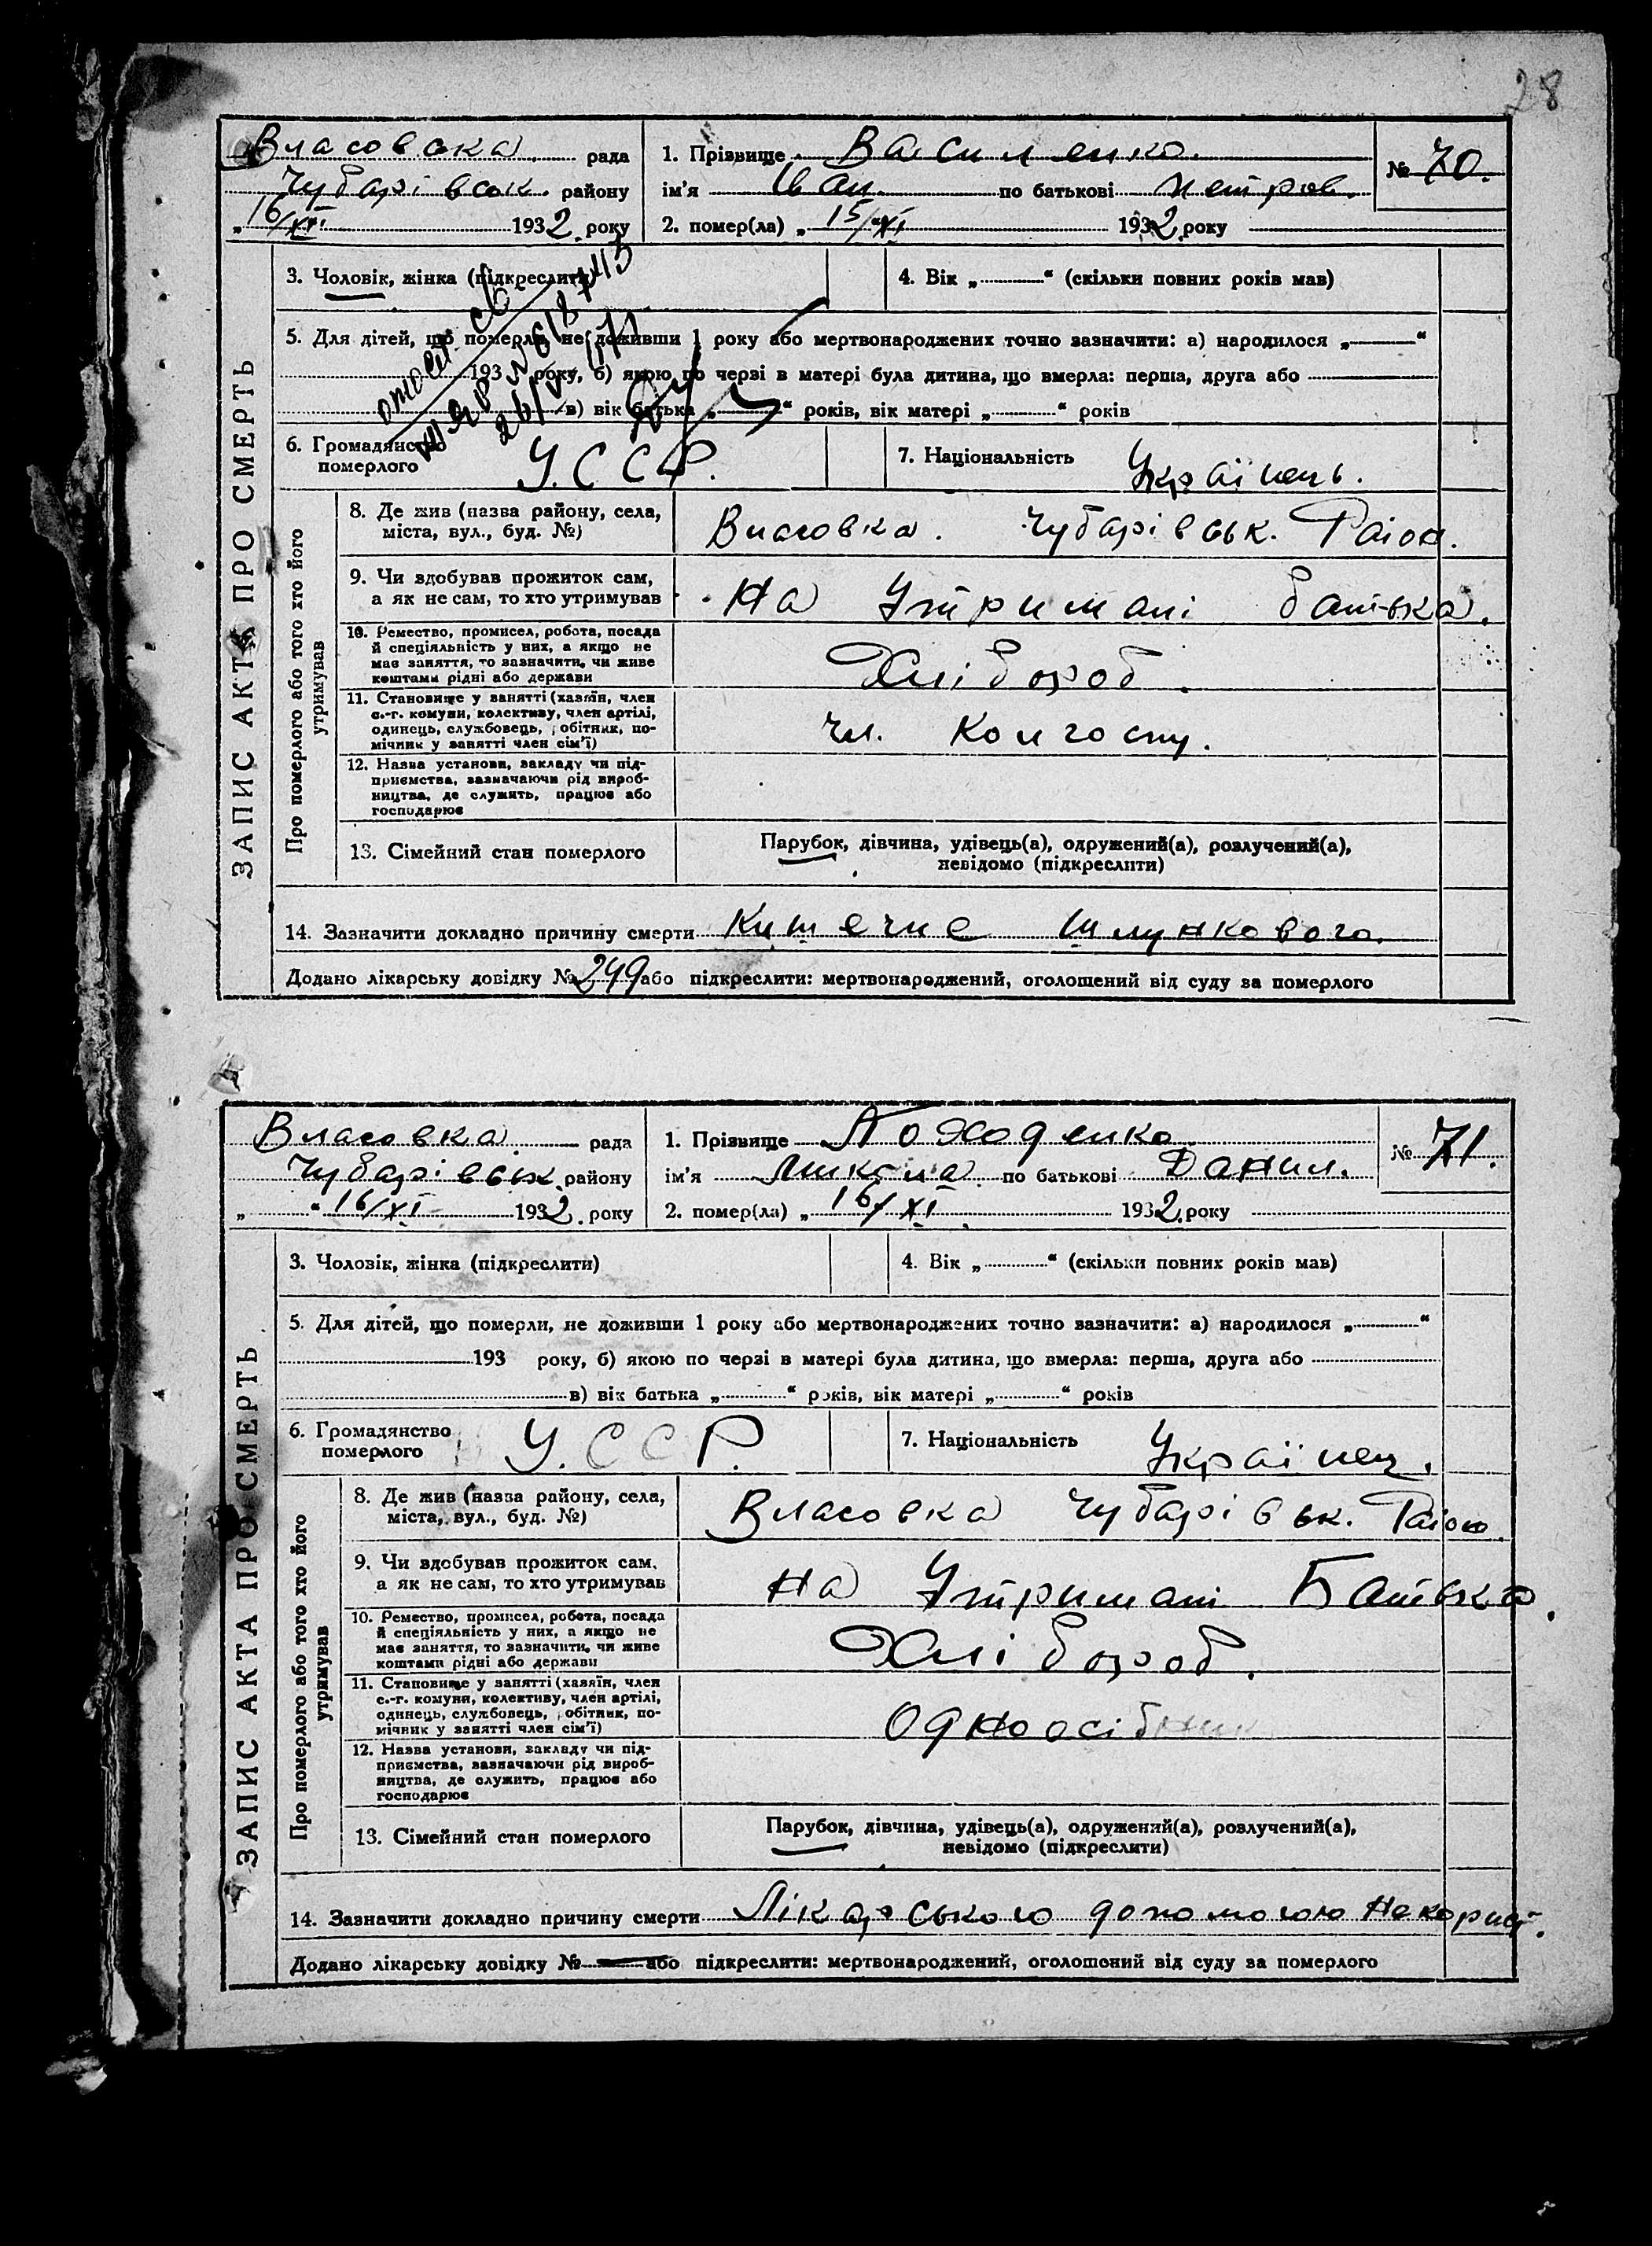 28
Власовска рада
Чубарівськ. району
„16/XI 1932. року
1. Прізвище Василенко.
ім'я Іван по батькові Петров.
2. помер(ла) „15/XI 1932 року
№ 70.
ЗАПИС АКТА ПРО СМЕРТЬ
3. Чоловік, жінка (підкреслити)
4. Вік „ “ (скільки повних років мав)
5. Для дітей, що померли, не доживши 1 року або мертвонароджених точно зазначити: а) народилося „ “
193 року, б) якою по черзі в матері була дитина, що вмерла: перша, друга або
в) вік батька „ “ років, вік матері „ “ років
6. Громадянство
померлого
У.С.С.Р.
7. Національність Українець.
Про померлого або того хто його
утримував
8. Де жив (назва району, села,
міста, вул., буд. №)
Власовка. Чубарівськ. Раіон.
9. Чи здобував прожиток сам,
а як не сам, то хто утримував
На Утримані батька.
10. Ремество, промисел, робота, посада
й спеціяльність у них, а якщо не
має заняття, то зазначити, чи живе
коштами рідні або держави
Хлібороб.
11. Становище у занятті (хазяїн, член
с.-г. комуни, колективу, член артілі,
одинець, службовець, робітник, по-
мічник у занятті член сім'ї)
Чл. Колгоспу.
12. Назва установи, закладу чи під-
приємства, зазначаючи рід вироб-
ництва, де служить, працює або
господарює
13. Сімейний стан померлого
Парубок, дівчина, удівець(а), одружений(а), розлучений(а),
невідомо (підкреслити)
14. Зазначити докладно причину смерти Кишечне шлункового.
Додано лікарську довідку № 249 або підкреслити: мертвонароджений, оголошений від суду за померлого
Власовка рада
Чубарівськ. району
„ “ 16/XI 1932. року
1. Прізвище Походенко
ім'я Микола по батькові Данил.
2. помер(ла) „16/XI 1932. року
№ 71.
ЗАПИС АКТА ПРО СМЕРТЬ
3. Чоловік, жінка (підкреслити)
4. Вік „ “ (скільки повних років мав)
5. Для дітей, що померли, не доживши 1 року або мертвонароджених точно зазначити: а) народилося „ “
193 року, б) якою по черзі в матері була дитина, що вмерла: перша, друга або
в) вік батька „ “ років, вік матері „ “ років
6. Громадянство
померлого
У.ССР.
7. Національність Українец.
Про померлого або того хто його
утримував
8. Де жив (назва району, села,
міста, вул., буд. №)
Власовка Чубарівськ. Раіон.
9. Чи здобував прожиток сам,
а як не сам, то хто утримував
на Утримані Батька.
10. Ремество, промисел, робота, посада
й спеціяльність у них, а якщо не
має заняття, то зазначити, чи живе
коштами рідні або держави
Хлібороб.
11. Становище у занятті (хазяїн, член
с.-г. комуни, колективу, член артілі,
одинець, службовець, робітник, по-
мічник у занятті член сім'ї)
Одноосібник
12. Назва установи, закладу чи під-
приємства, зазначаючи рід вироб-
ництва, де служить, працює або
господарює
13. Сімейний стан померлого
Парубок, дівчина, удівець(а), одружений(а), розлучений(а),
невідомо (підкреслити)
14. Зазначити докладно причину смерти Лікарською допомогою Некорист.
Додано лікарську довідку № або підкреслити: мертвонароджений, оголошений від суду за померлого